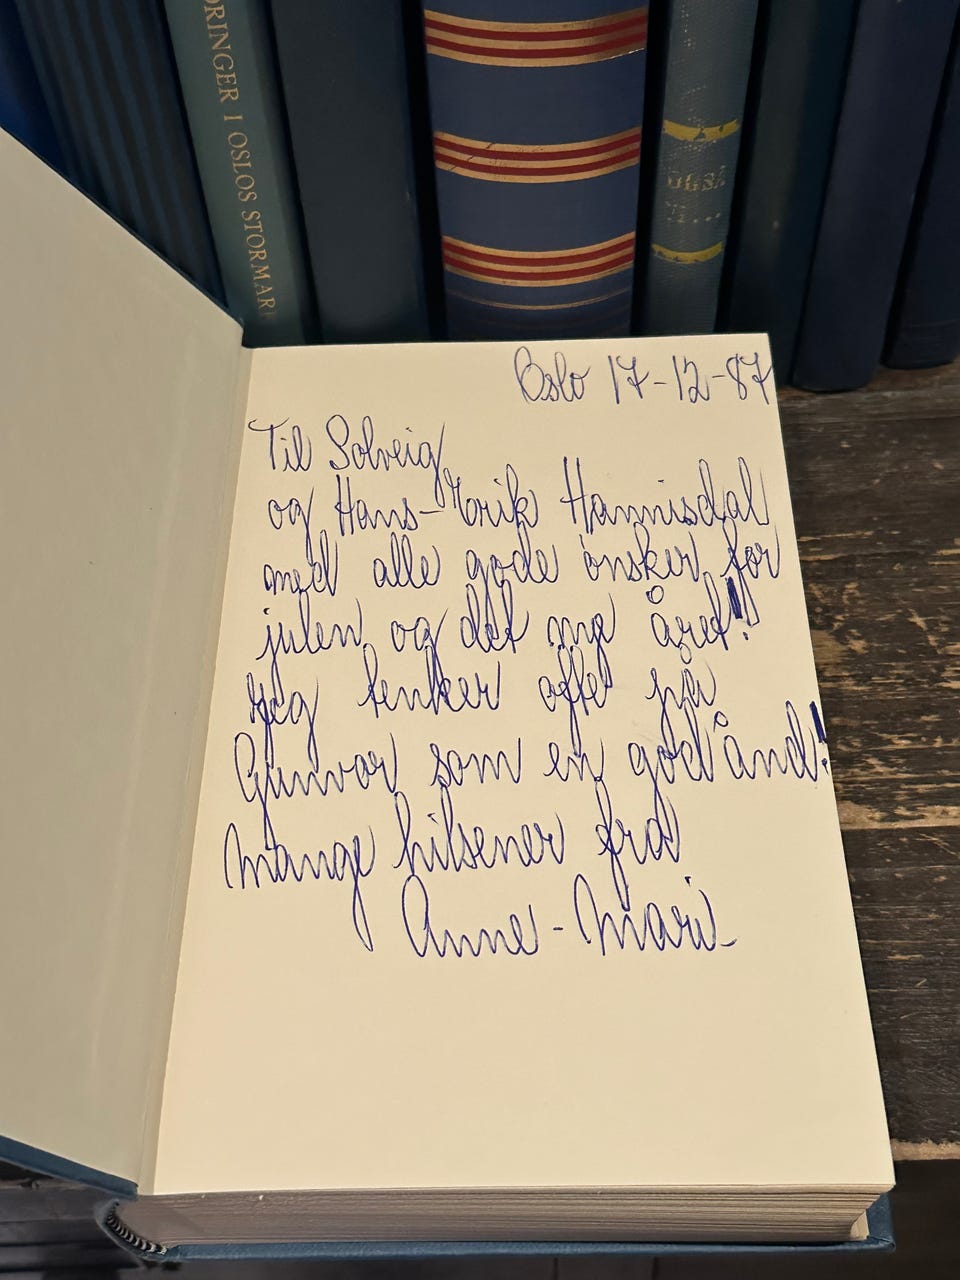 ORINGER I OSLOS STORMAR
OGSÅ
Oslo 17-12-87
Til Solveig
og Hans-Erik Hannisdal
med alle gode ønsker for
julen og det nye året!
Jeg tenker ofte på
Gunvor som en god ånd!
Mange hilsener fra
Anne-Mari-